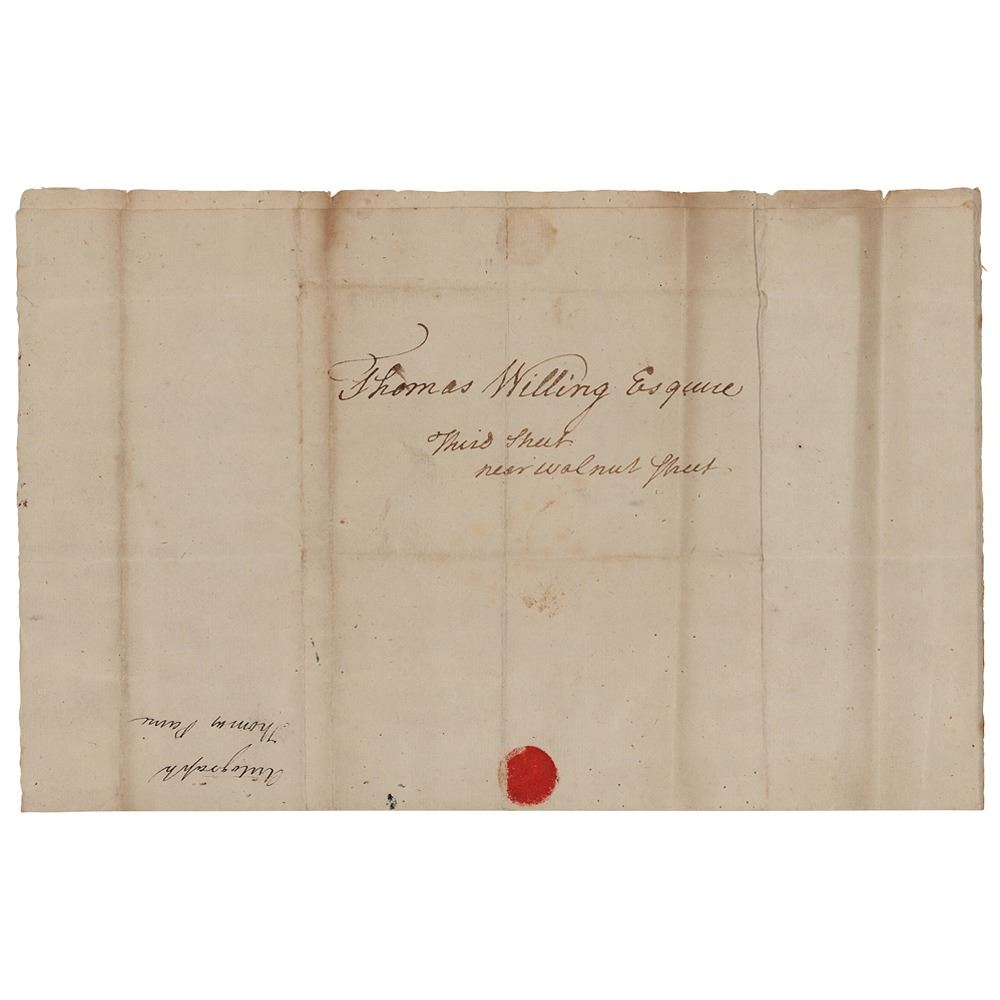 Thomas Willing Esquire
Third Street
near Walnut Street.
Autograph
Thomas Paine